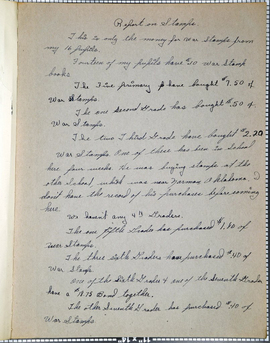 Report on Stamps.
This is only the money for War Stamps from
my 16 pupils.
Fourteen of my pupils have $10 War Stamp
books.
The five primary have bought $7.50 of
War Stamps.
The one Second Grade has bought $.50 of
War Stamps.
The two Third Grade have bought $2.20
War Stamps. One of these has been to School
here four weeks. He was buying stamps at the
other School which was near Norman Oklahoma. I
dont have the record of his purchases before coming
here.
We havent any 4th Graders.
The one fifth Grader has purchased $1.30 of
War Stamps.
The three sixth Graders have purchased $.40 of
War Stamps.
One of the Sixth Graders & one of the Seventh Grader
have a $18.75 Bond together.
The other Seventh Grader has purchased $.40 of
War Stamps.